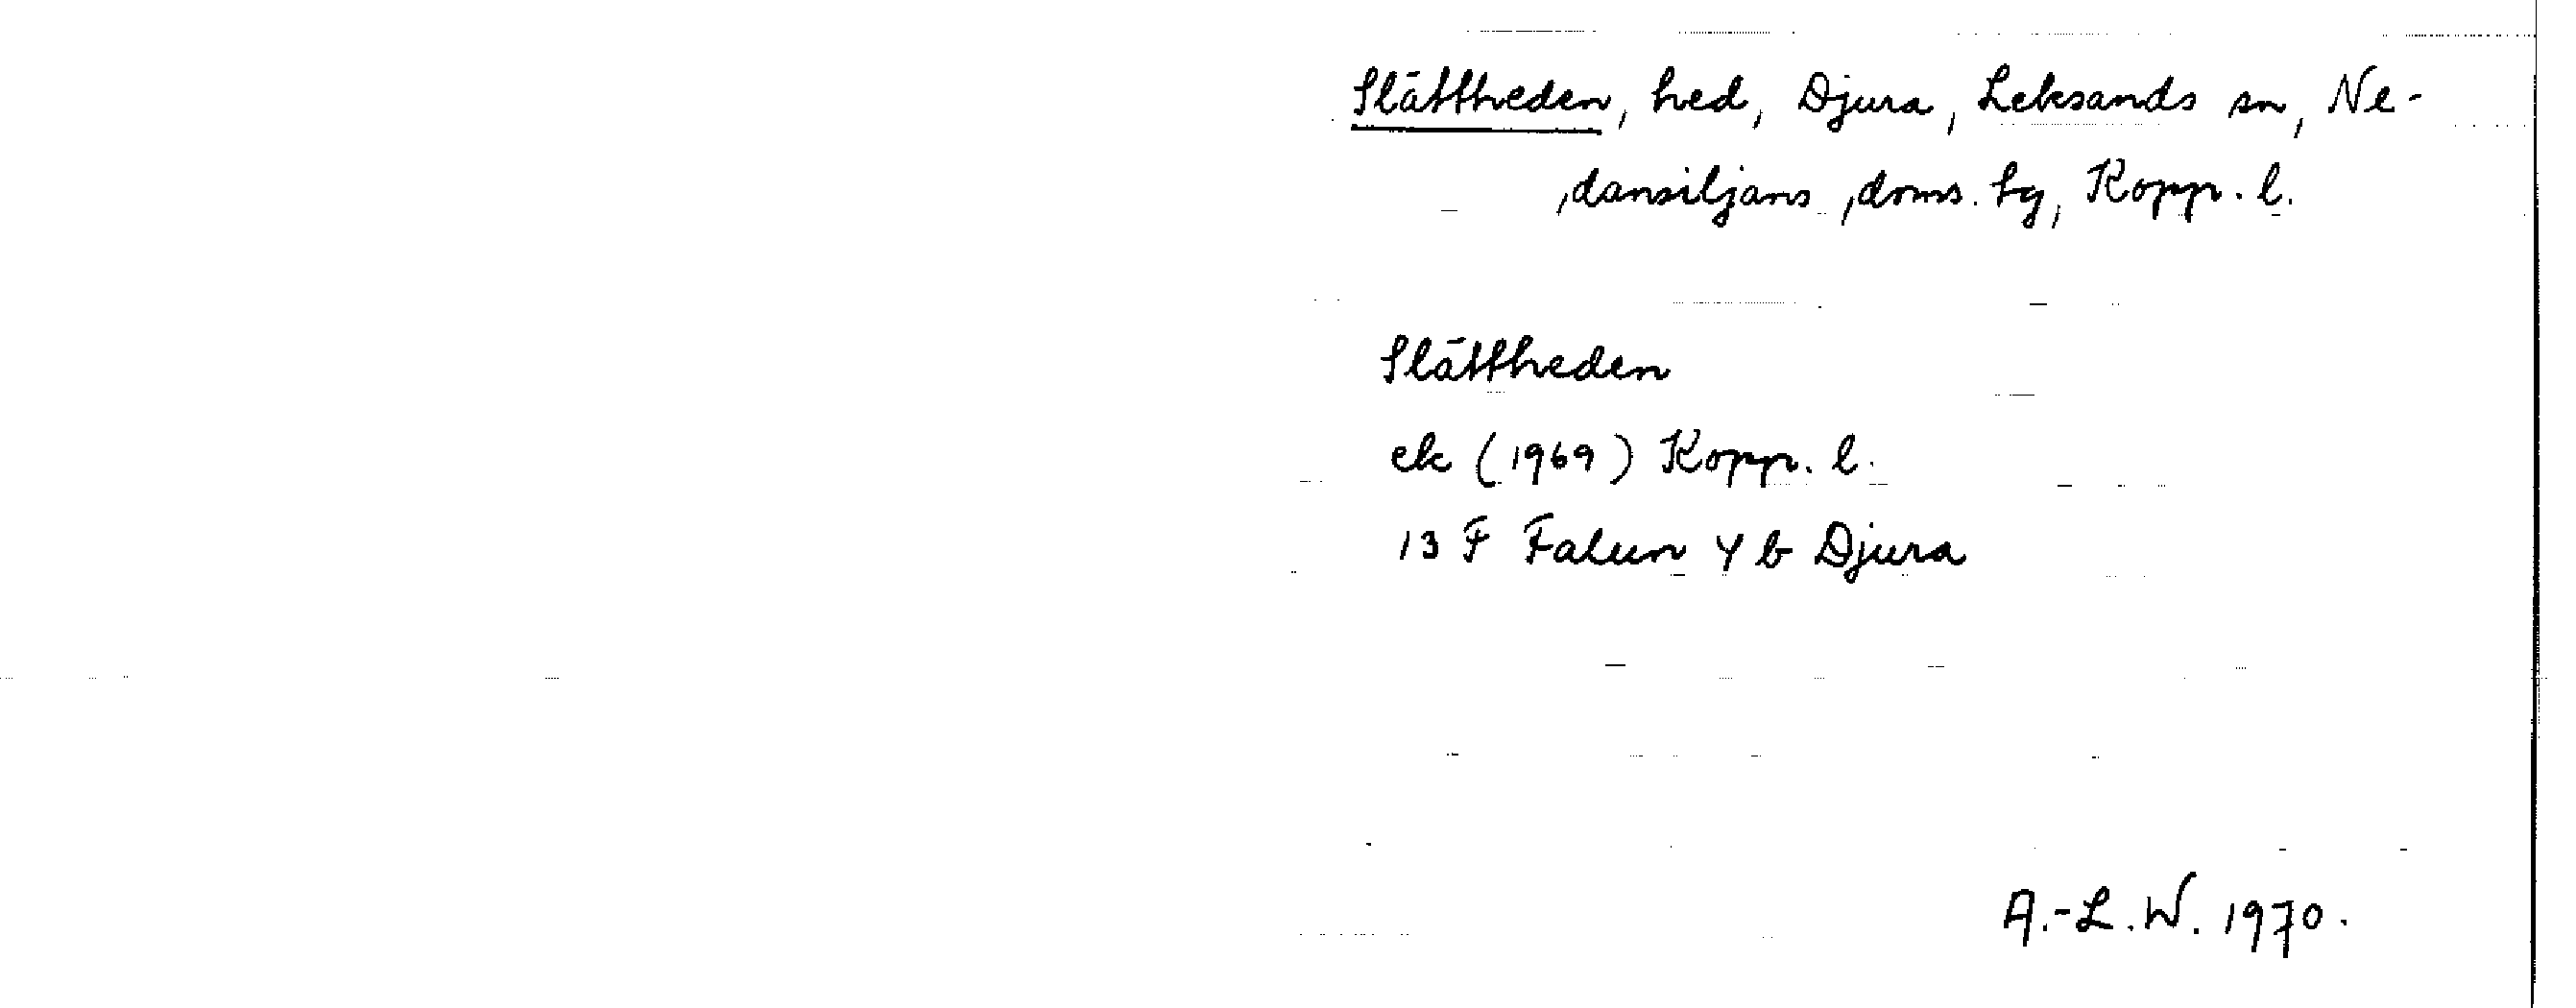 Slättheden, hed, Djura, Leksands sn, Ne-
dansiljans doms. tg, Kopp. l.
Slättheden
ek (1969) Kopp. l.
13 F Falun 4 b Djura
A.-L. W. 1970.